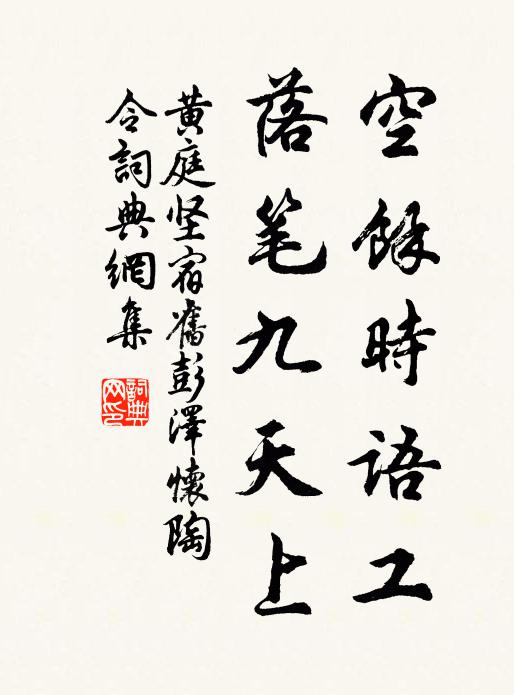 空餘時語工
落笔九天上
黄庭坚宿舊彭澤懷陶
令詞典網集
詞典
网印